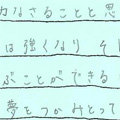 力なさることと思
は強くなり そ
ぶことができる
夢をつかみとって